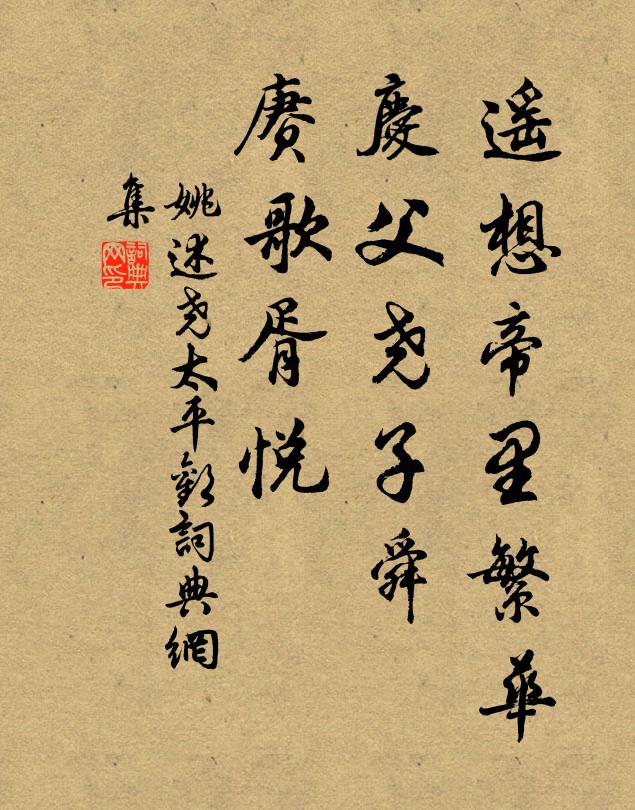 遥想帝里繁華
慶父尧子舜
赓歌胥悅
姚述尧太平歡詞典網
集
詞典
网印